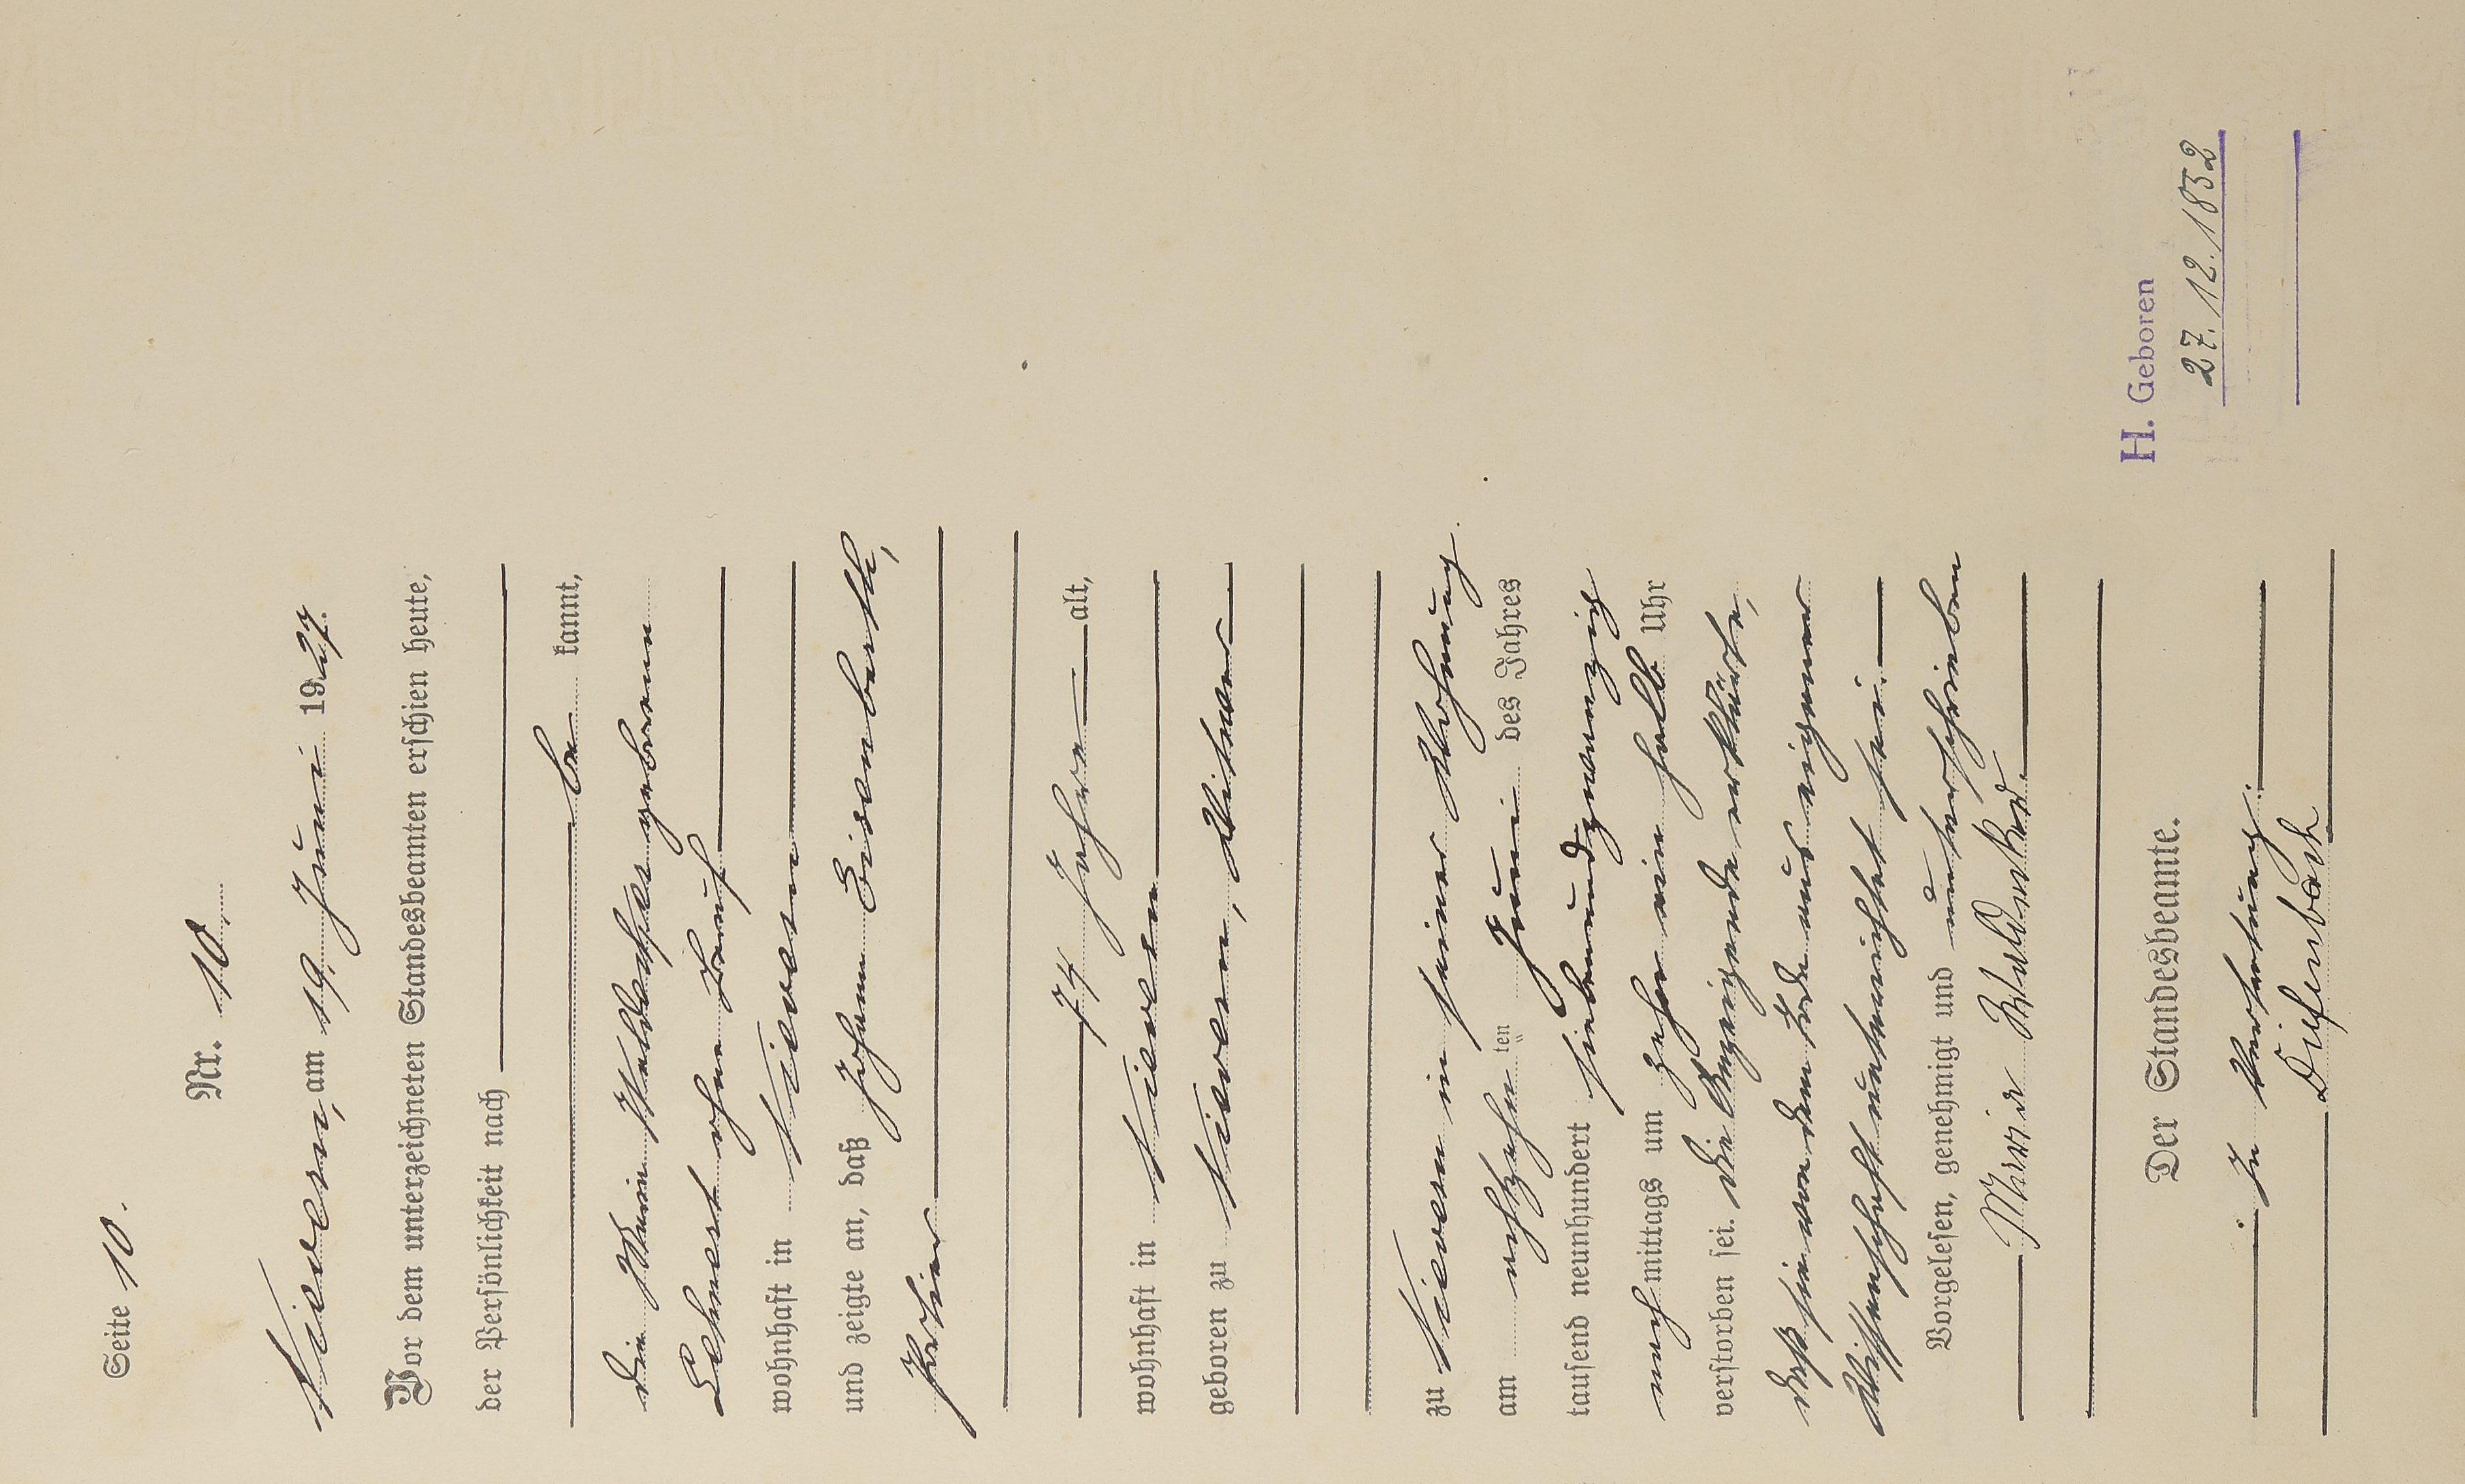 Seite 10.
Nr. 10.
Nievern, am 19. Juni 1927.
Vor dem unterzeichneten Standesbeamten erschien heute,
der Persönlichkeit nach
be kannt,
die Maria Waldecker geborenen
Lehnert ohne Beruf
wohnhaft in Nievern
und zeigte an, daß Johann Eisenbarth,
74 Jahre alt,
wohnhaft in Nievern
geboren zu Nievern, Witwer
zu Nievern in seiner Wohnung
am achtzehn ten Juni des Jahres
tausend neunhundert siebenundzwanzig
nach mittags um zehn ein halb Uhr
verstorben sei. Die Anzeigende erklärte,
daß sie von dem Tode aus eigener
Wissenschaft unterrichtet sei.
Vorgelesen, genehmigt und unterschrieben
Maria Waldecker.
Der Standesbeamte.
In Vertretung.
Diefenbach
H. Geboren
27. 12. 1852